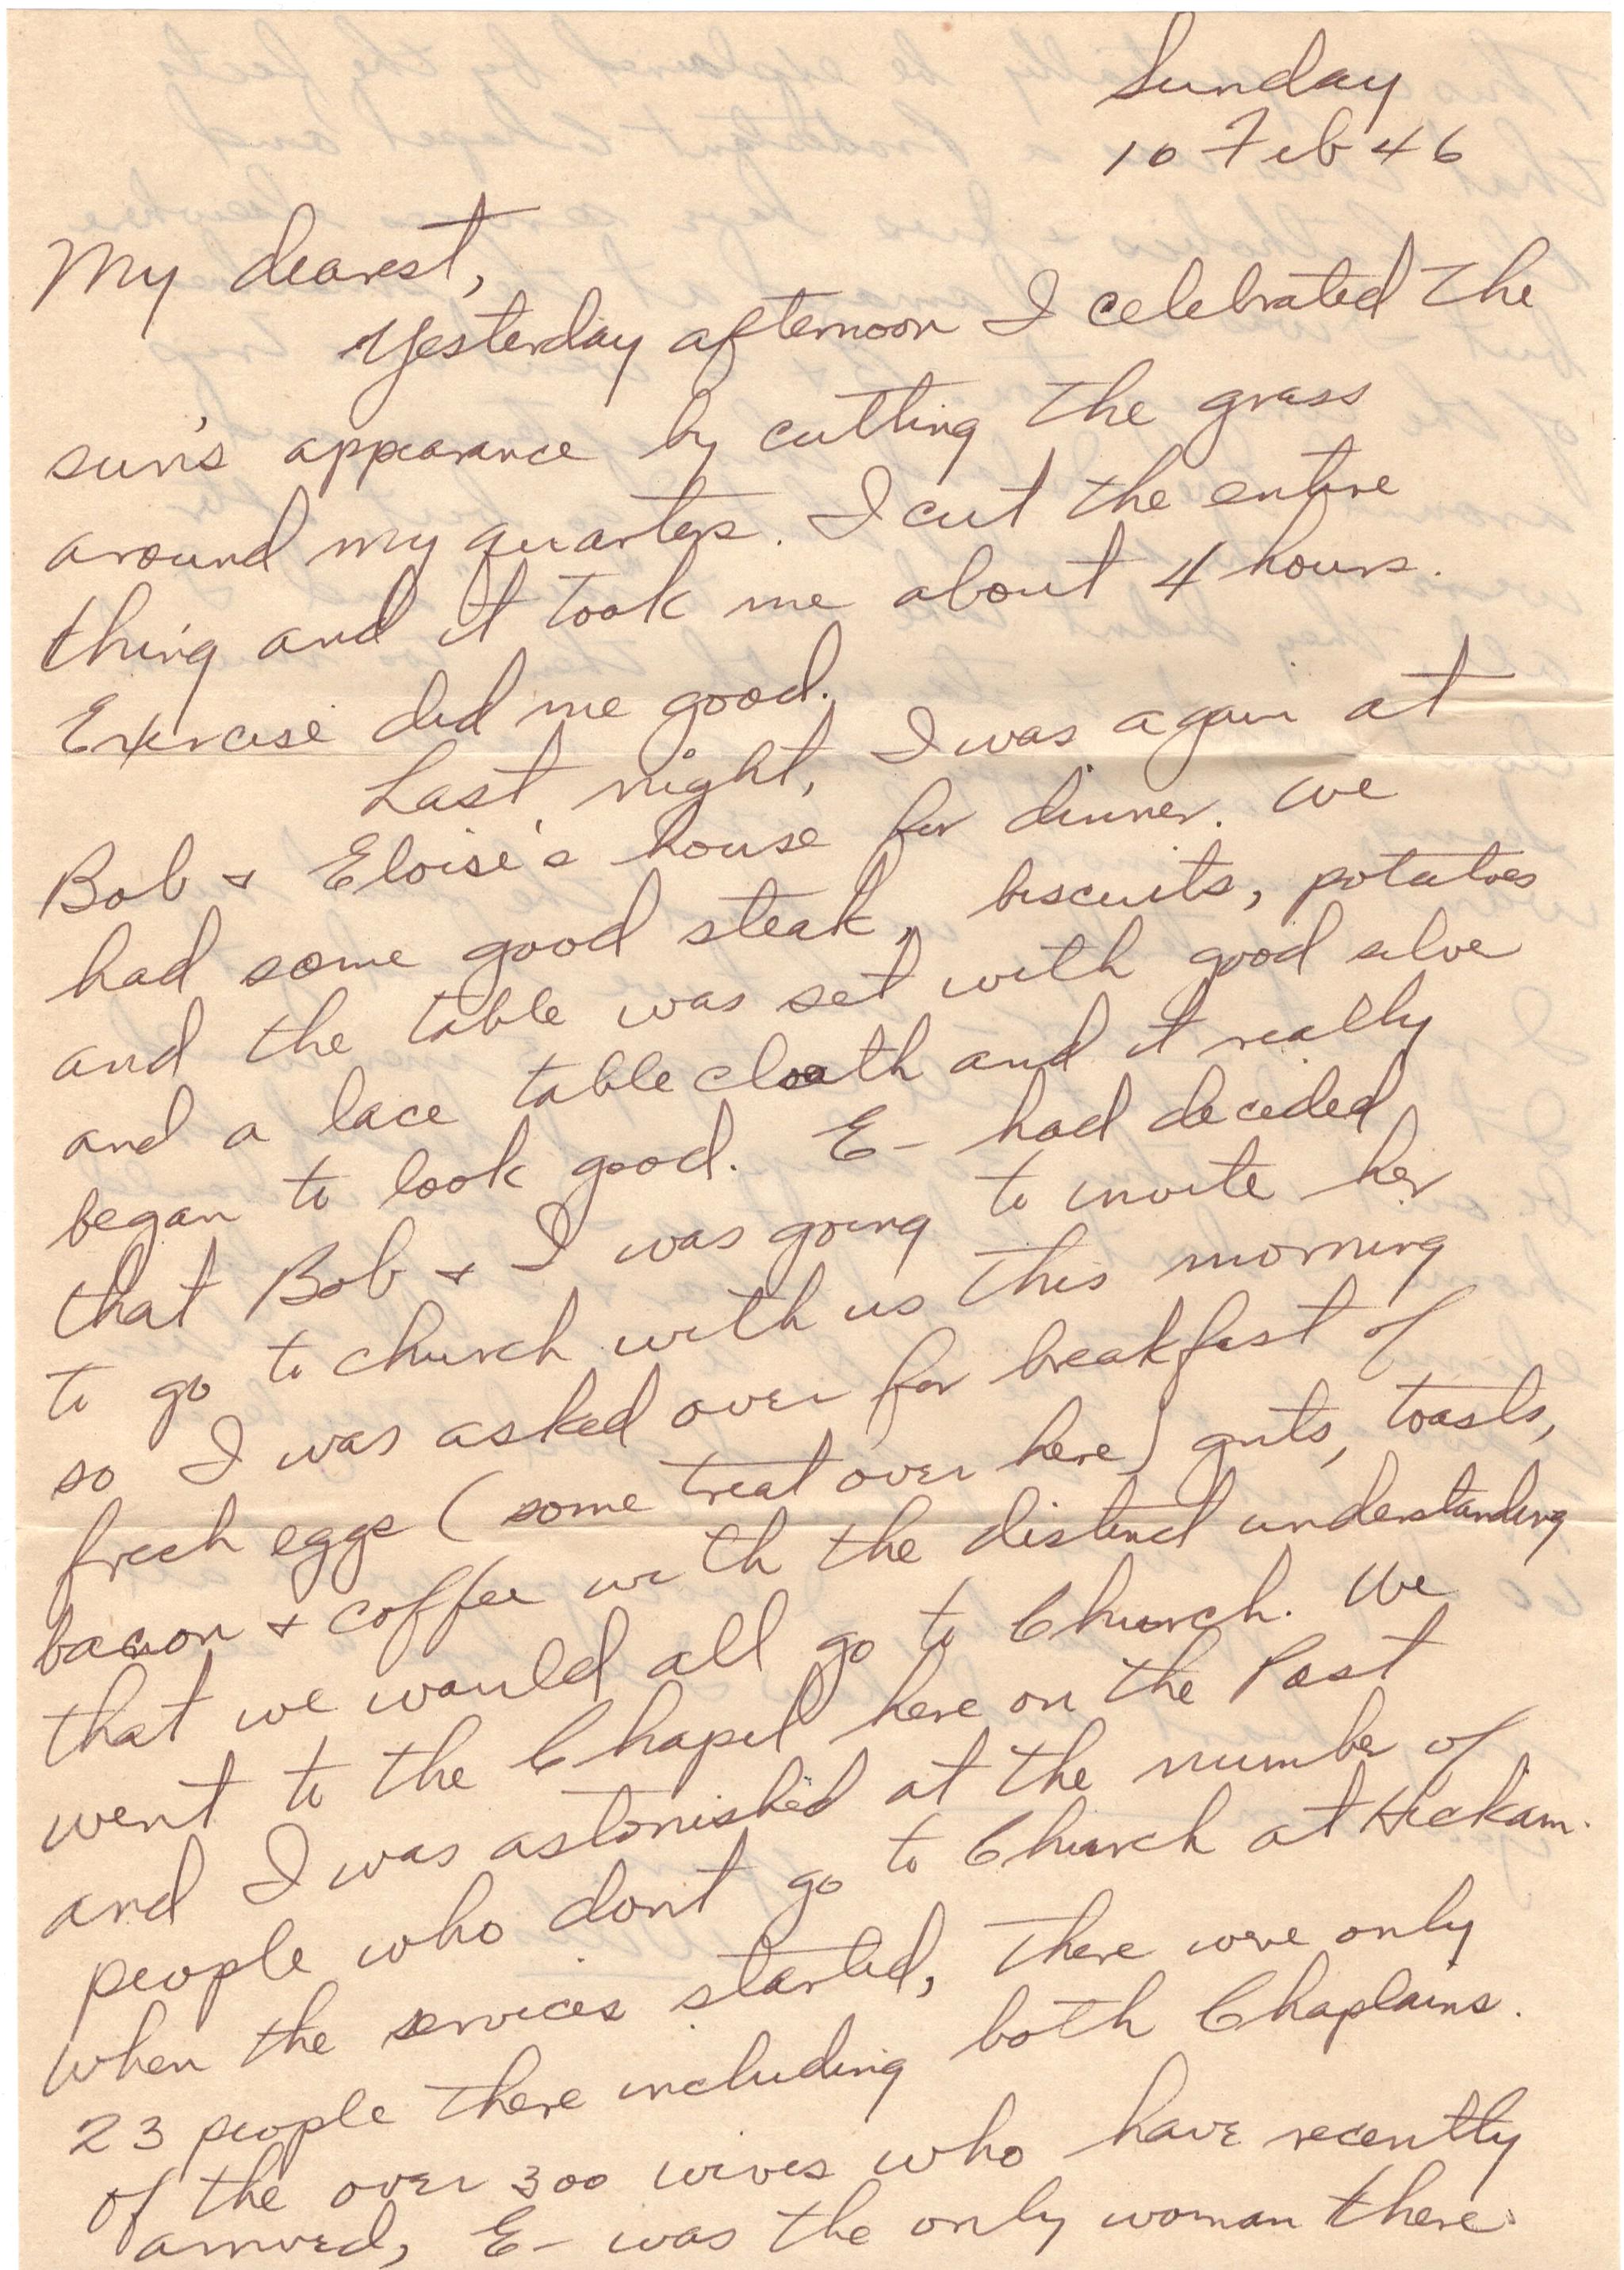 Sunday
10 Feb 46
My dearest,
Yesterday afternoon I celebrated the
sun's appearance by cutting the grass
around my quarters. I cut the entire
thing and it took me about 4 hours.
Exercise did me good.
Last night, I was again at
Bob + Eloise's house for dinner. We
had some good steak, biscuits, potatoes
and the table was set with good silver
and a lace table cloath and it really
began to look good. E- had decided
that Bob + I was going to invite her
to go to church with us this morning
so I was asked over for breakfast of
fresh eggs (some treat over here) grits, toasts,
bacon + coffee with the distinct understanding
that we would all go to Church. We
went to the Chapel here on the Post
and I was astonished at the number of
people who dont go to Church at Hickam.
When the services started, there were only
23 people there including both Chaplains.
Of the over 300 wives who have recently
arrived, E- was the only woman there.